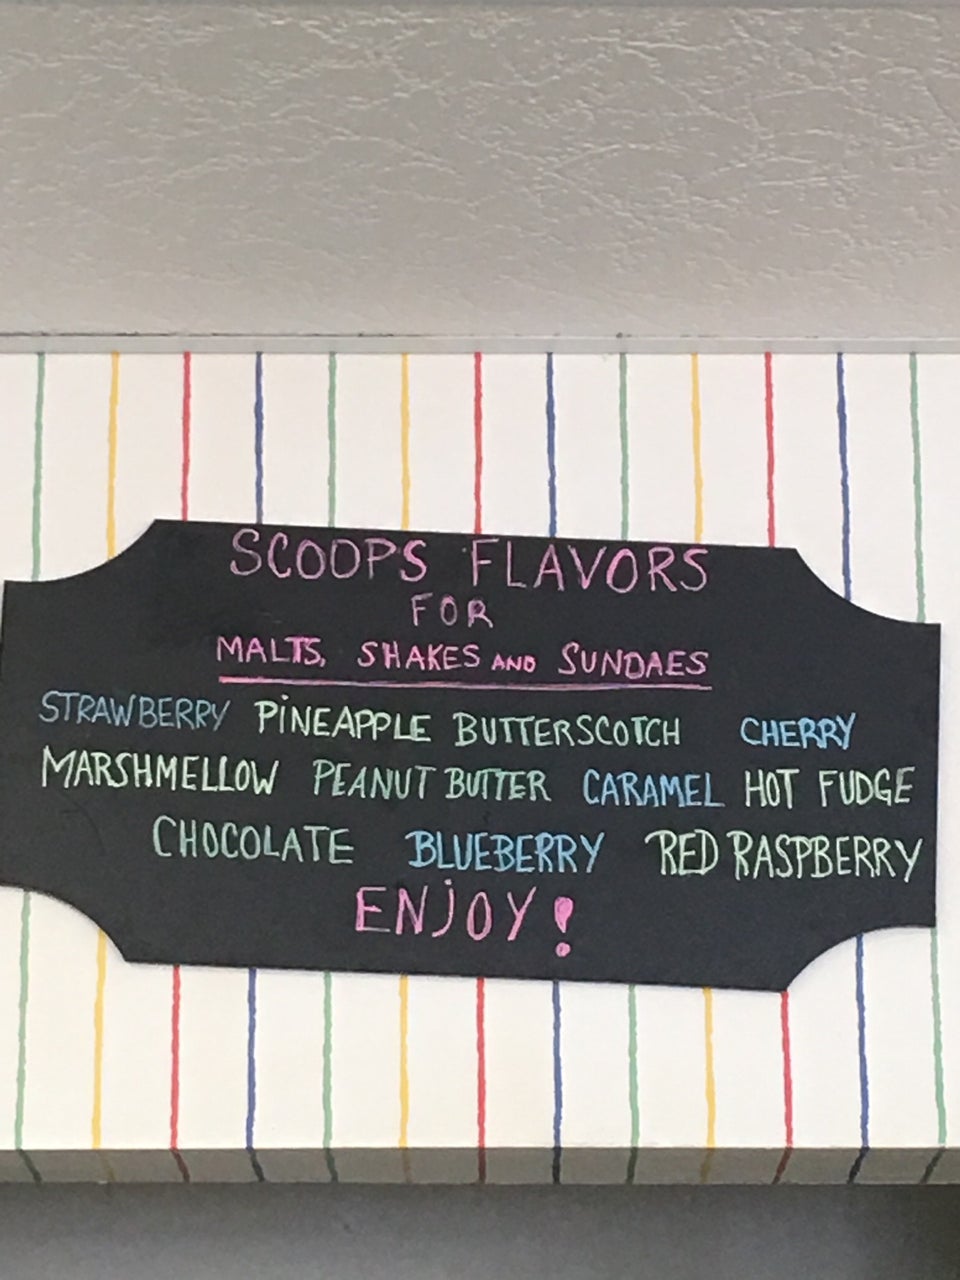 SCOOPS FLAVORS
FOR
MALTS, SHAKES AND SUNDAES
STRAWBERRY PINEAPPLE BUTTERSCOTCH CHERRY
MARSHMELLOW PEANUT BUTTER CARAMEL HOT FUDGE
CHOCOLATE BLUEBERRY RED RASPBERRY
ENJOY!